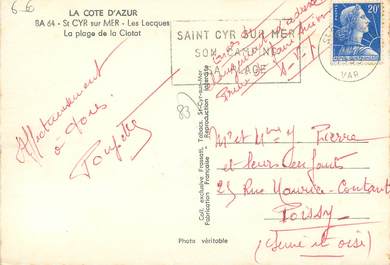 6 -
LA COTE D'AZUR
BA 64 - St CYR sur MER - Les Lecques
La plage de la Ciotat
SAINT CYR SUR MER
SON CAMPING
SA PLAGE
VAR
20F
Affectueusement
à vous.
Poupette
83
Coll. exclusive Frassati, Tabacs, St-Cyr-sur-Mer
Fabrication Française - Reproduction Interdite
Photo véritable
Mr et Mme Y Pierre
et leurs enfants
25 Rue Maurice-Coutant
Poissy
(Seine et oise)